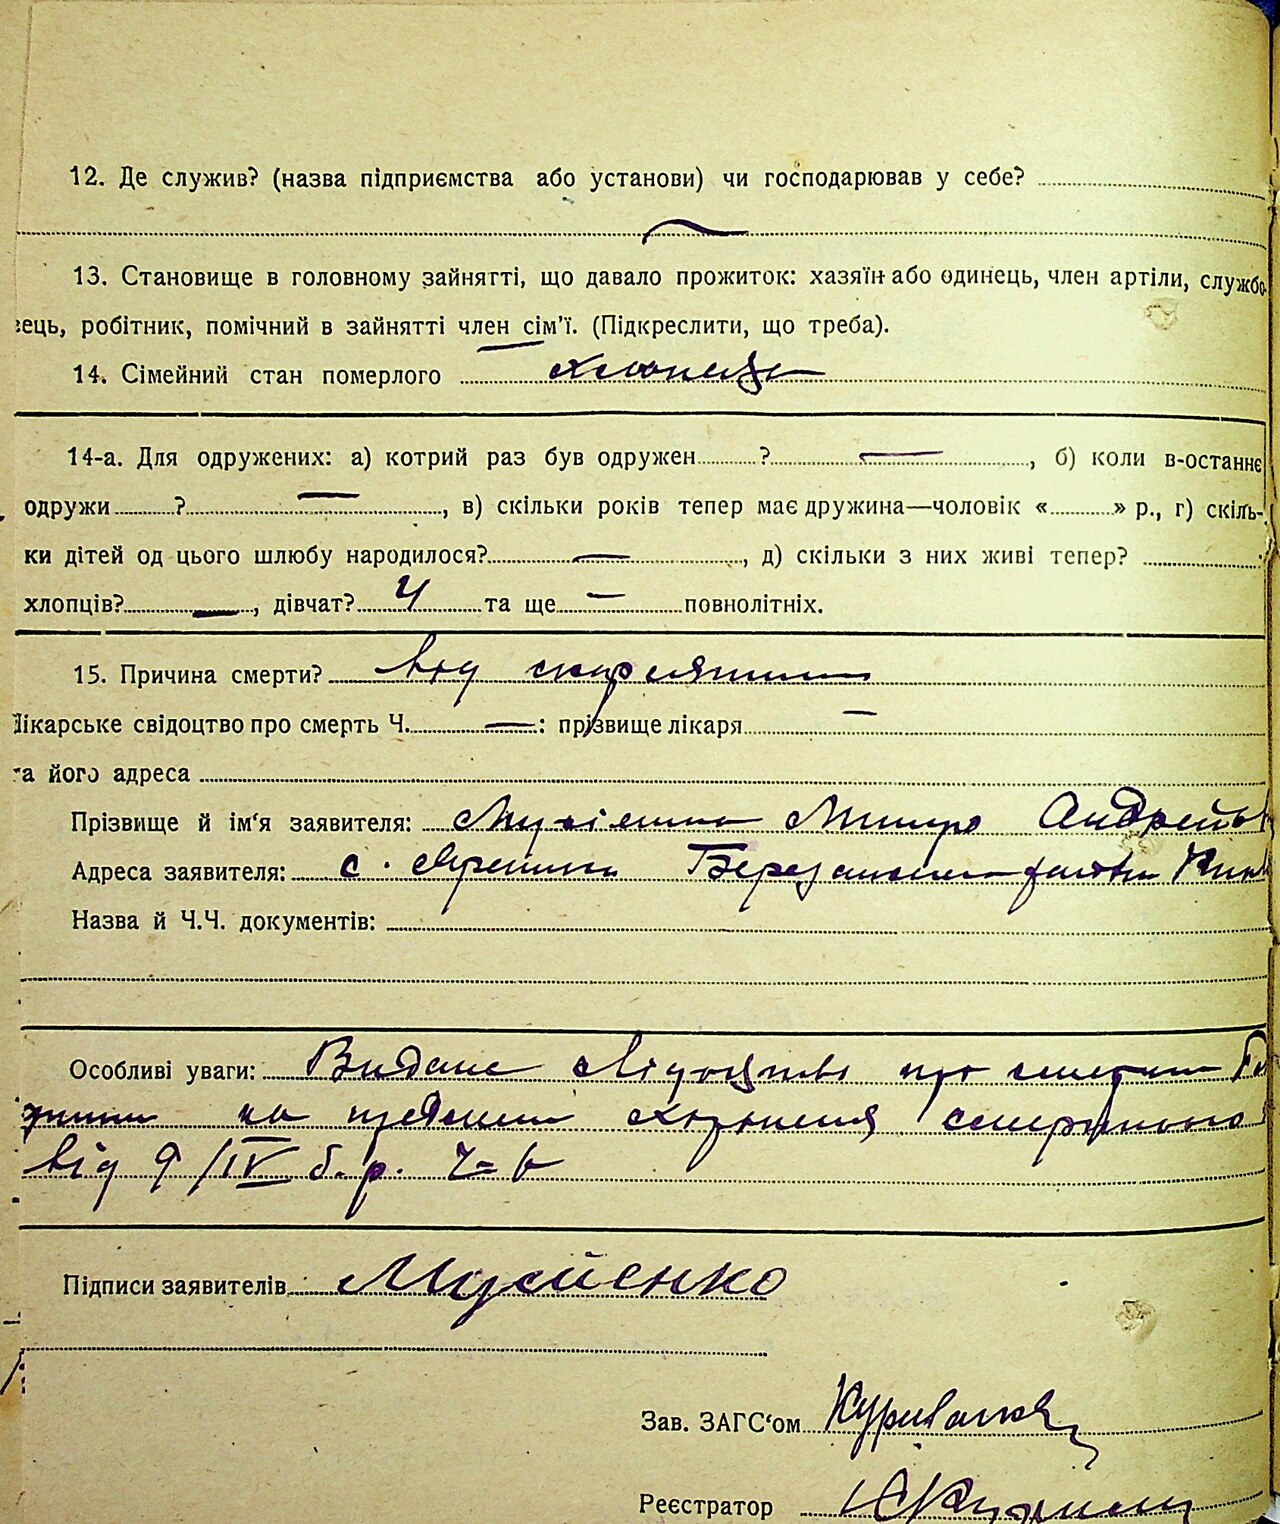 12. Де служив? (назва підприємства або установи) чи господарював у себе?
13. Становище в головному зайнятті, що давало прожиток: хазяїн або одинець, член артіли, службо-
вець, робітник, помічний в зайнятті член сім'ї. (Підкреслити, що треба).
14. Сімейний стан померлого хлопець
14-а. Для одружених: а) котрий раз був одружен ? —, б) коли в-останнє
одружи ? —, в) скільки років тепер має дружина—чоловік « » р., г) скіль-
ки дітей од цього шлюбу народилося? —, д) скільки з них живі тепер?
хлопців? —, дівчат? Ч та ще — повнолітніх.
15. Причина смерти? від скарлятини
Лікарське свідоцтво про смерть Ч. —: прізвище лікаря —
та його адреса
Прізвище й ім'я заявителя: Андрей
Адреса заявителя: с.
Назва й Ч.Ч. документів:
Особливі уваги: Видане свідоцтво про смерть
на предмет схоронення
від 9/IV б.р. Ч= 6
Підписи заявителів Мусієнко
Зав. ЗАГС'ом
Реєстратор